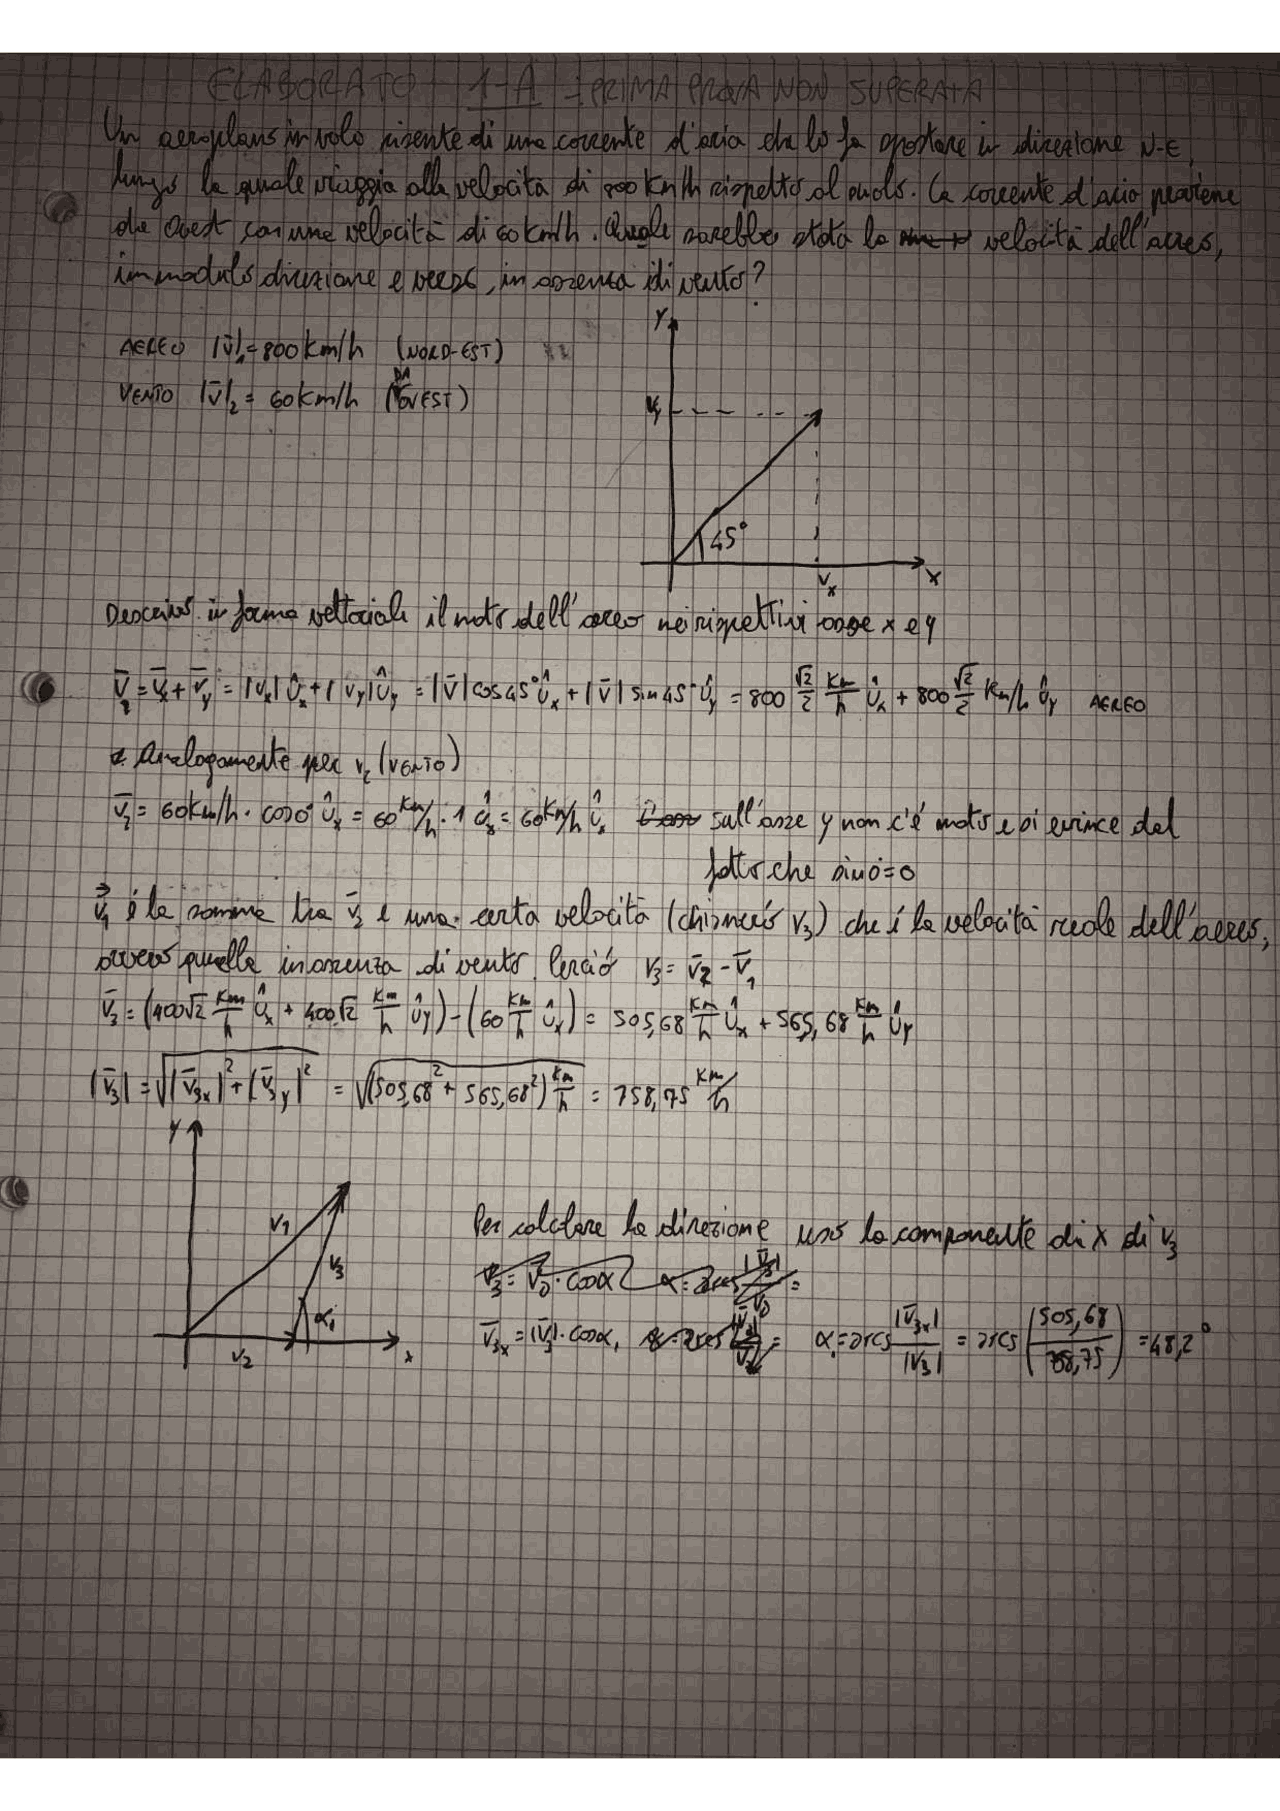 ELABORATO 1-A - PRIMA PROVA NON SUPERATA
Un aeroplano in volo risente di una corrente d'aria che lo fa spostare in direzione N-E,
lungo la quale viaggia alla velocità di 800 Km/h rispetto al suolo. La corrente d'aria proviene
da Ovest con una velocità di 60 km/h. Quale sarebbe stata la velocità dell'aereo,
in modulo direzione e verso, in assenza di vento?
AEREO |v̄|₁ = 800 Km/h (NORD-EST)
VENTO |v̄|₂ = 60 Km/h (DA OVEST)
Y
Vy
45°
Vx
X
Descrivo in forma vettoriale il moto dell'aereo nei rispettivi asse x e y
v̄₂ = v̄x + v̄y = |vx| ûx + |vy| ûy = |v̄| cos45° ûx + |v̄| sin45° ûy = 800 √2/2 Km/h ûx + 800 √2/2 Km/h ûy AEREO
Analogamente per v₂ (VENTO)
v̄₂ = 60 Km/h · cos0° ûx = 60 Km/h · 1 ûx = 60 Km/h ûx sull'asse y non c'é moto e si evince dal
fatto che sin0° = 0
v⃗₁ é la somma tra v̄₂ e una certa velocità (chiamerò v₃) che é la velocità reale dell'aereo,
ovvero quella in assenza di vento. Perciò v₃ = v̄₂ - v̄₁
v̄₃ = (400√2 Km/h ûx + 400√2 Km/h ûy) - (60 Km/h ûx) = 505,68 Km/h ûx + 565,68 Km/h ûy
|v̄₃| = √(|v̄₃x|² + |v̄₃y|²) = √(505,68² + 565,68²) Km/h = 758,75 Km/h
Y
V₁
V₃
α₁
V₂
X
Per calcolare la direzione uso la componente di x di v₃
v̄₃x = |v̄₃| · cosα₁ = α₁ = arcs |v̄₃x|/|v₃| = arcs (505,68/758,75) = 48,2°